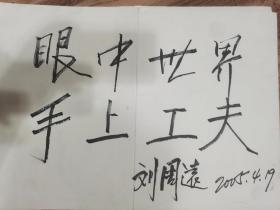 眼中世界
手上工夫
刘周远 2005.4.19